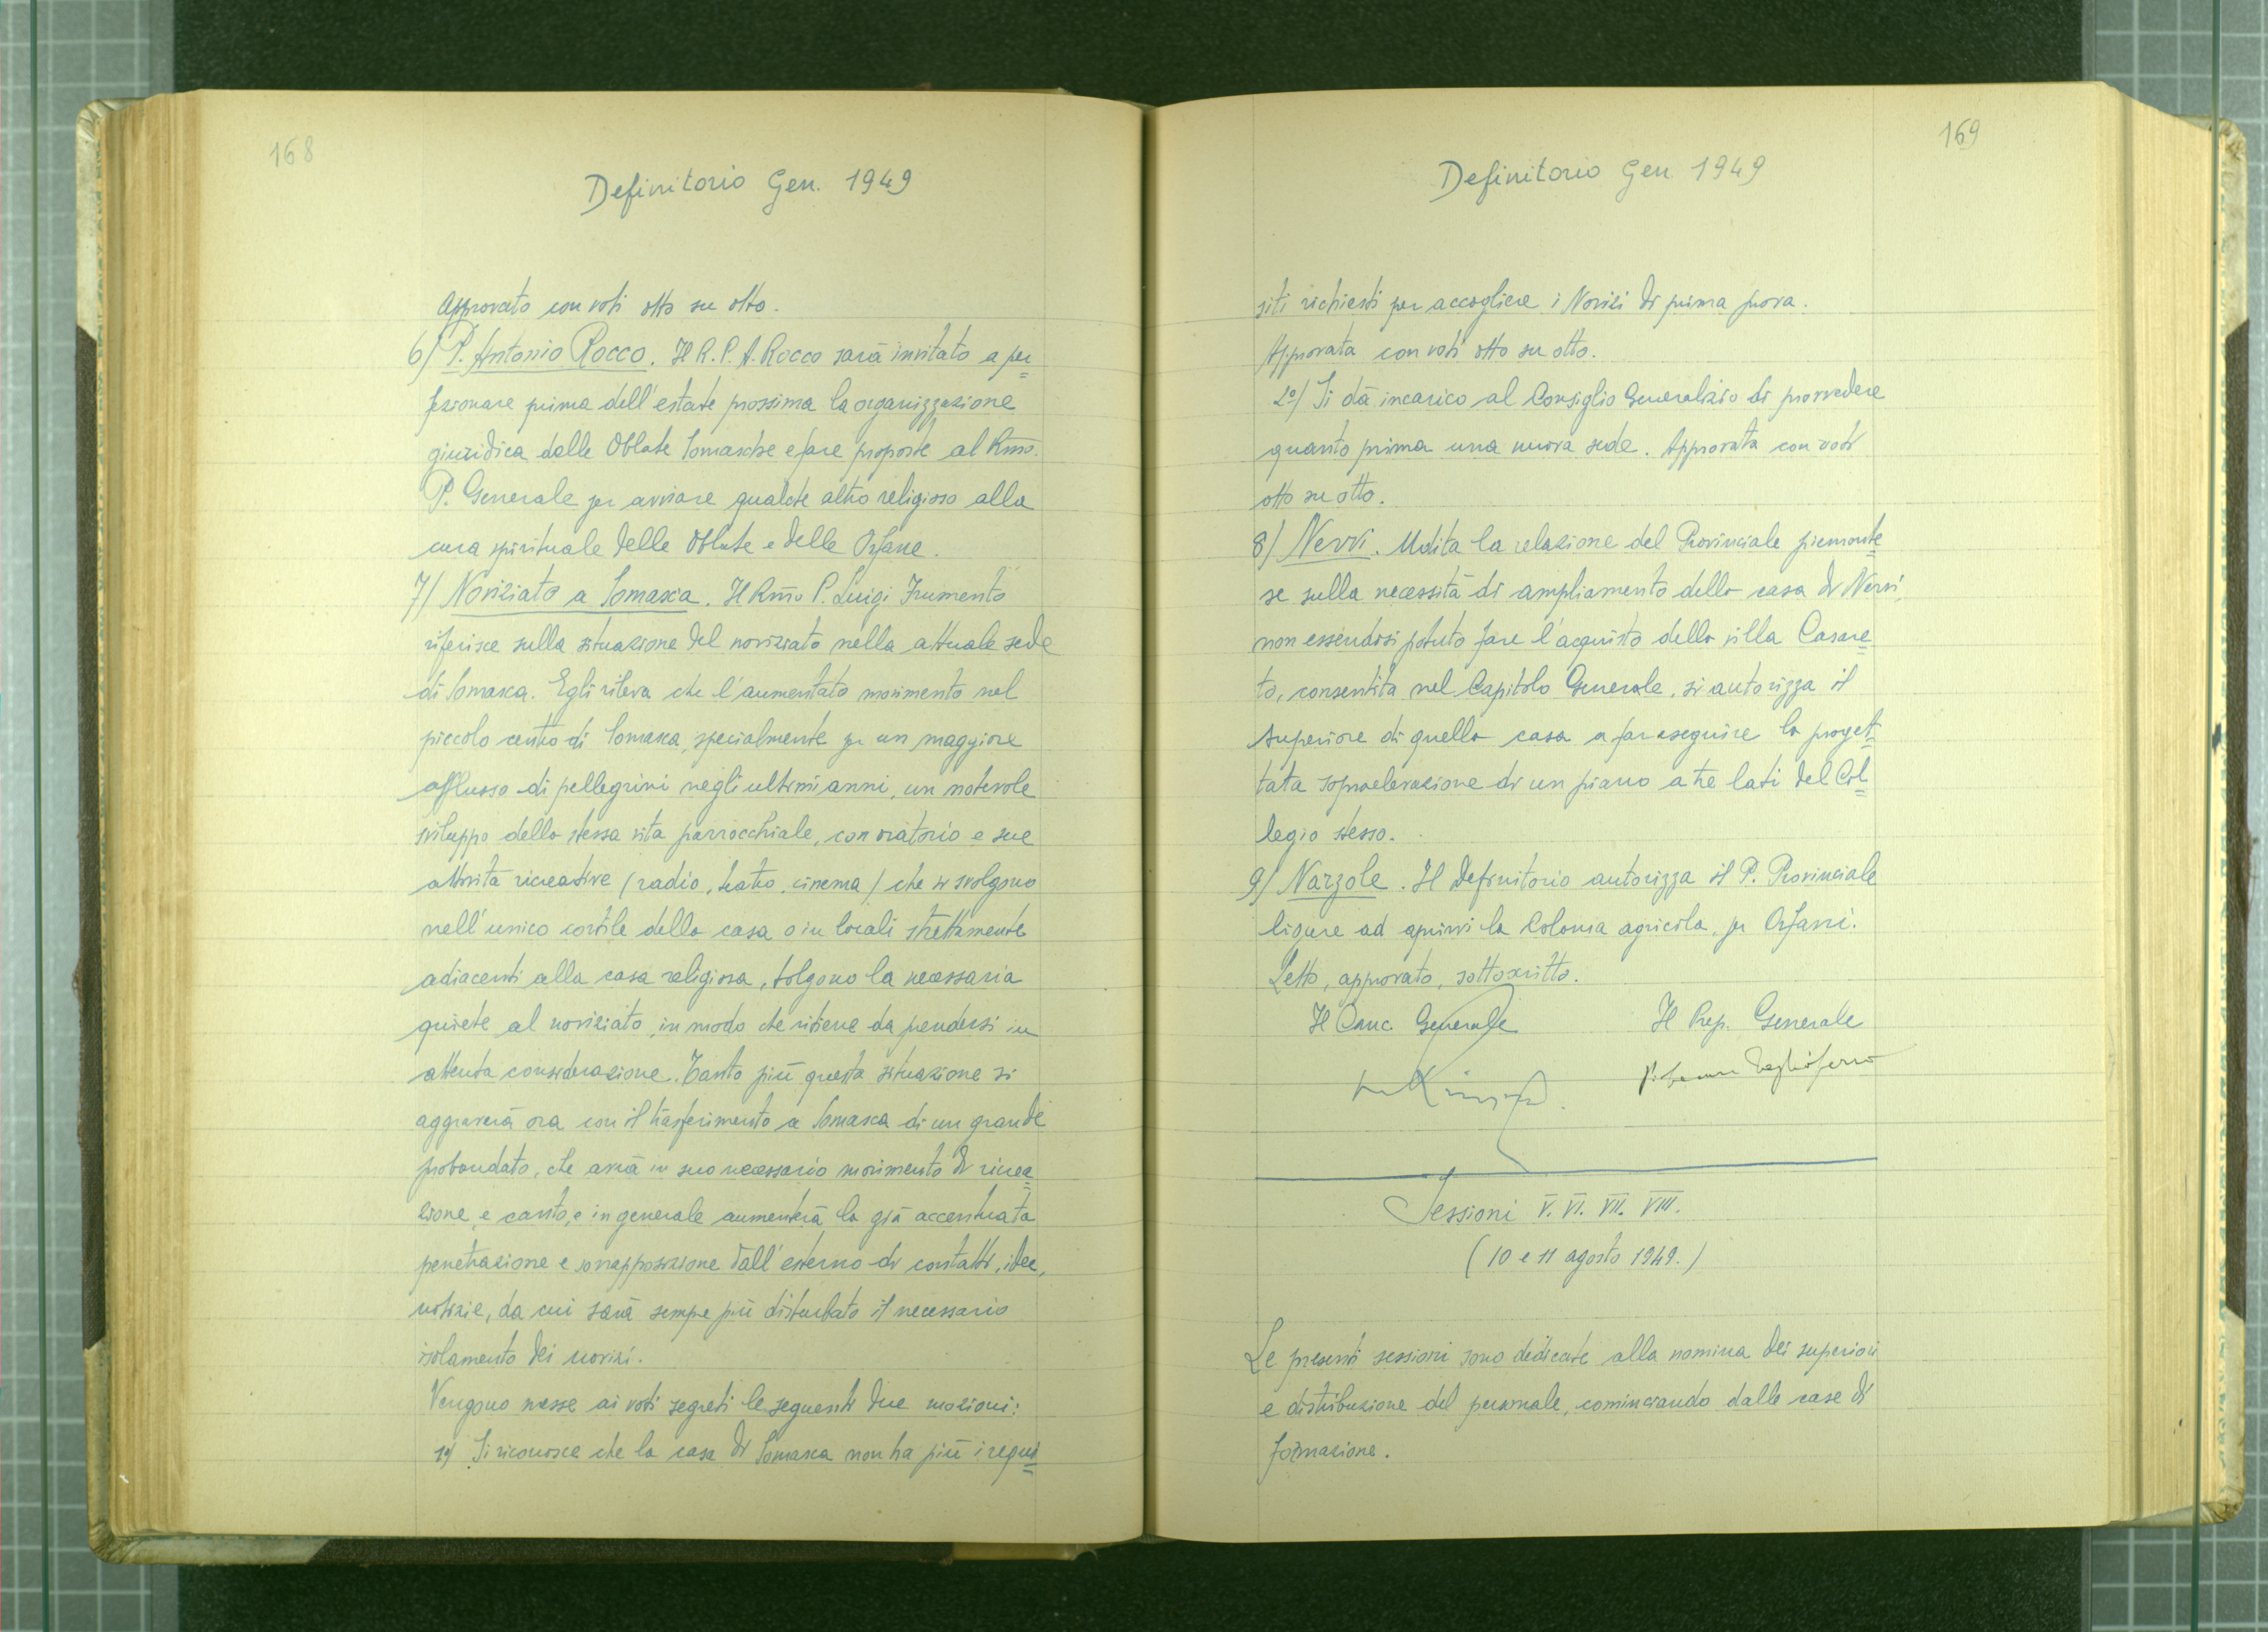 168
Definitorio Gen. 1949
Approvato con voti otto su otto.
6) P. Antonio Rocco. Il R. P. A. Rocco sarà invitato a per=
fezionare prima dell'estate prossima la organizzazione
giuridica delle Oblate Somasche e fare proposte al Rmo.
P. Generale per avviare qualche altro religioso alla
cura spirituale delle Oblate e delle Orfane.
7) Noviziato a Somasca. Il Rmo P. Luigi Frumento
riferisce sulla situazione del noviziato nella attuale sede
di Somasca. Egli rileva che l'aumentato movimento nel
piccolo centro di Somasca, specialmente per un maggiore
afflusso di pellegrini negli ultimi anni, un notevole
sviluppo della stessa vita parrocchiale, con oratorio e sue
attività ricreative (radio, teatro, cinema) che si svolgono
nell'unico cortile della casa o in locali strettamente
adiacenti alla casa religiosa, tolgono la necessaria
quiete al noviziato, in modo che ritiene da prendersi in
attenta considerazione. Tanto più questa situazione si
aggraverà ora con il trasferimento a Somasca di un grande
probandato, che avrà in suo necessario movimento di ricrea=
zione, e canto, e in generale aumenterà la già accentuata
penetrazione e sovrapposizione dall'esterno di contatti, idee,
notizie, da cui sarà sempre più disturbato il necessario
isolamento dei novizi.
Vengono messe ai voti segreti le seguenti due mozioni:
1º) Si riconosce che la casa di Somasca non ha più i requi=
169
Definitorio Gen 1949
siti richiesti per accogliere i Novizi di prima prova.
Approvata con voti otto su otto.
2º) Si dà incarico al Consiglio Generalizio di provvedere
quanto prima una nuova sede. Approvata con voti
otto su otto.
8) Nervi. Udita la relazione del Provinciale piemonte=
se sulla necessità di ampliamento della casa di Nervi,
non essendosi potuto fare l'acquisto della villa Casare=
to, consentita nel Capitolo Generale, si autorizza il
Superiore di quella casa a far eseguire la proget=
tata sopraelevazione di un piano a tre lati del Col=
legio stesso.
9) Narzole. Il Definitorio autorizza il P. Provinciale
ligure ad aprirvi la Colonia agricola, per Orfani.
Letto, approvato, sottoscritto.
Il Canc. Generale Il Prep. Generale
Sessioni V. VI. VII. VIII.
(10 e 11 agosto 1949.)
Le presenti sessioni sono dedicate alla nomina dei superiori
e distribuzione del personale, cominciando dalle case di
formazione.